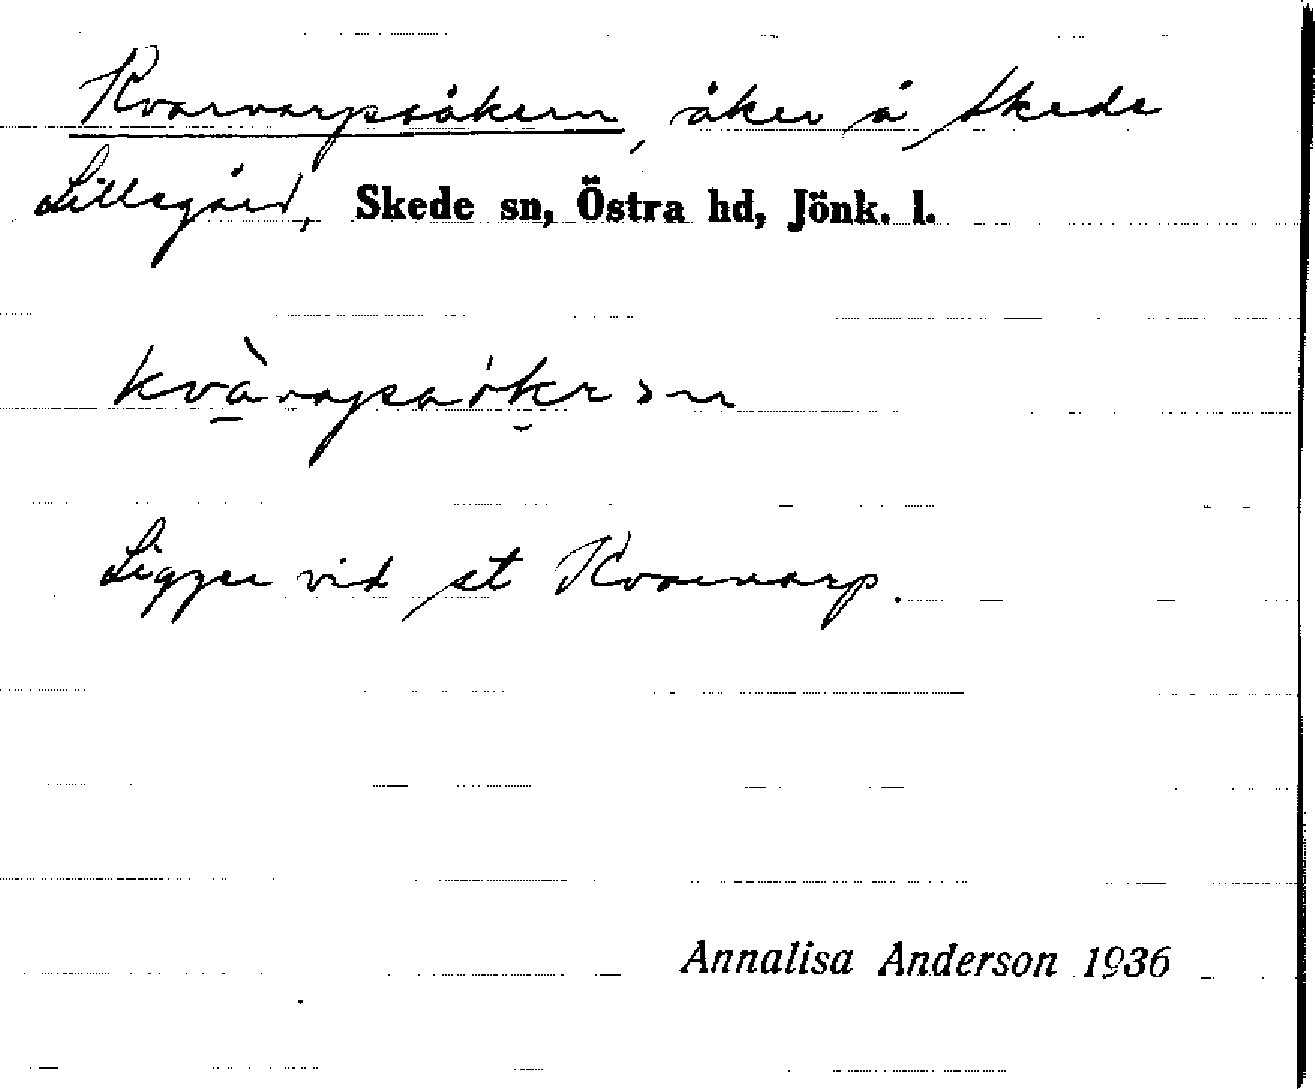 Kvarvarpsåkern, åker å Skede
Lillegård, Skede sn, Östra hd, Jönk. l.
Ligger vid st Kvarvarp.
Annalisa Anderson 1936